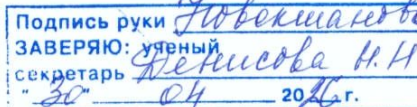 Подпись руки Новокшанова
ЗАВЕРЯЮ: ученый
секретарь Денисова Н.Н
"30" 04 2026 г.